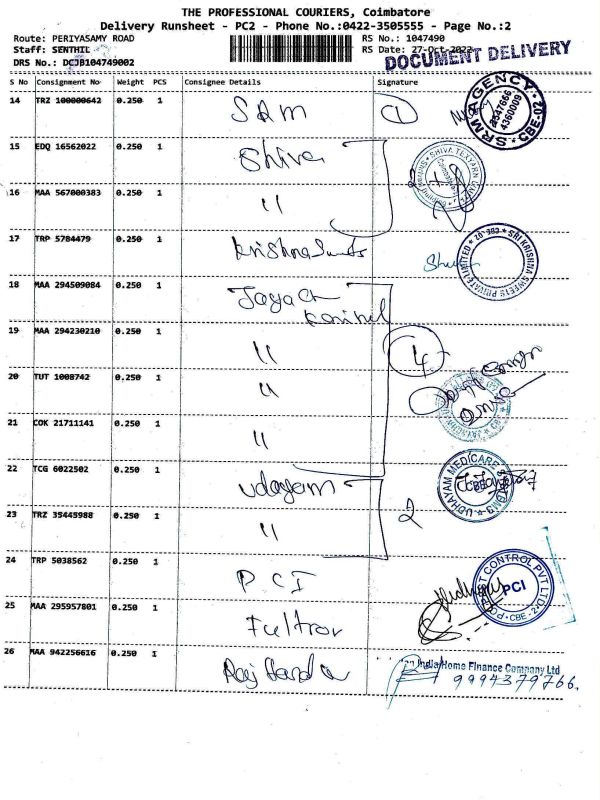 THE PROFESSIONAL COURIERS, Coimbatore
Delivery Runsheet - PC2 - Phone No.:0422-3505555 - Page No.:2
Route: PERIYASAMY ROAD RS No.: 1047490
Staff: SENTHIL RS Date: 27-Oct-2022
DOCUMENT DELIVERY
DRS No.: DCJB104749002
S No Consignment No Weight PCS Consignee Details Signature
14 TRZ 100000642 0.250 1 SRM 1
SRM AGENCY CBE-02
4360009
15 EDQ 16562022 0.250 1 Shiva
SHIVA TEXYARN
16 MAA 567000383 0.250 1 " 2
17 TRP 5784479 0.250 1 Krishna
SRI KRISHNA SWEETS PRIVATE LIMITED
18 MAA 294509084 0.250 1
19 MAA 294230210 0.250 1 " 4
20 TUT 1008742 0.250 1 "
21 COK 21711141 0.250 1 "
22 TCG 6022502 0.250 1 udayam
UDHAYAM MEDICARE
23 TRZ 35445988 0.250 1 " 2
24 TRP 5038562 0.250 1 PCI
PEST CONTROL PVT LTD
PCI
CBE
25 MAA 295957801 0.250 1
26 MAA 942256616 0.250 1
India Home Finance Company Ltd
9994379766